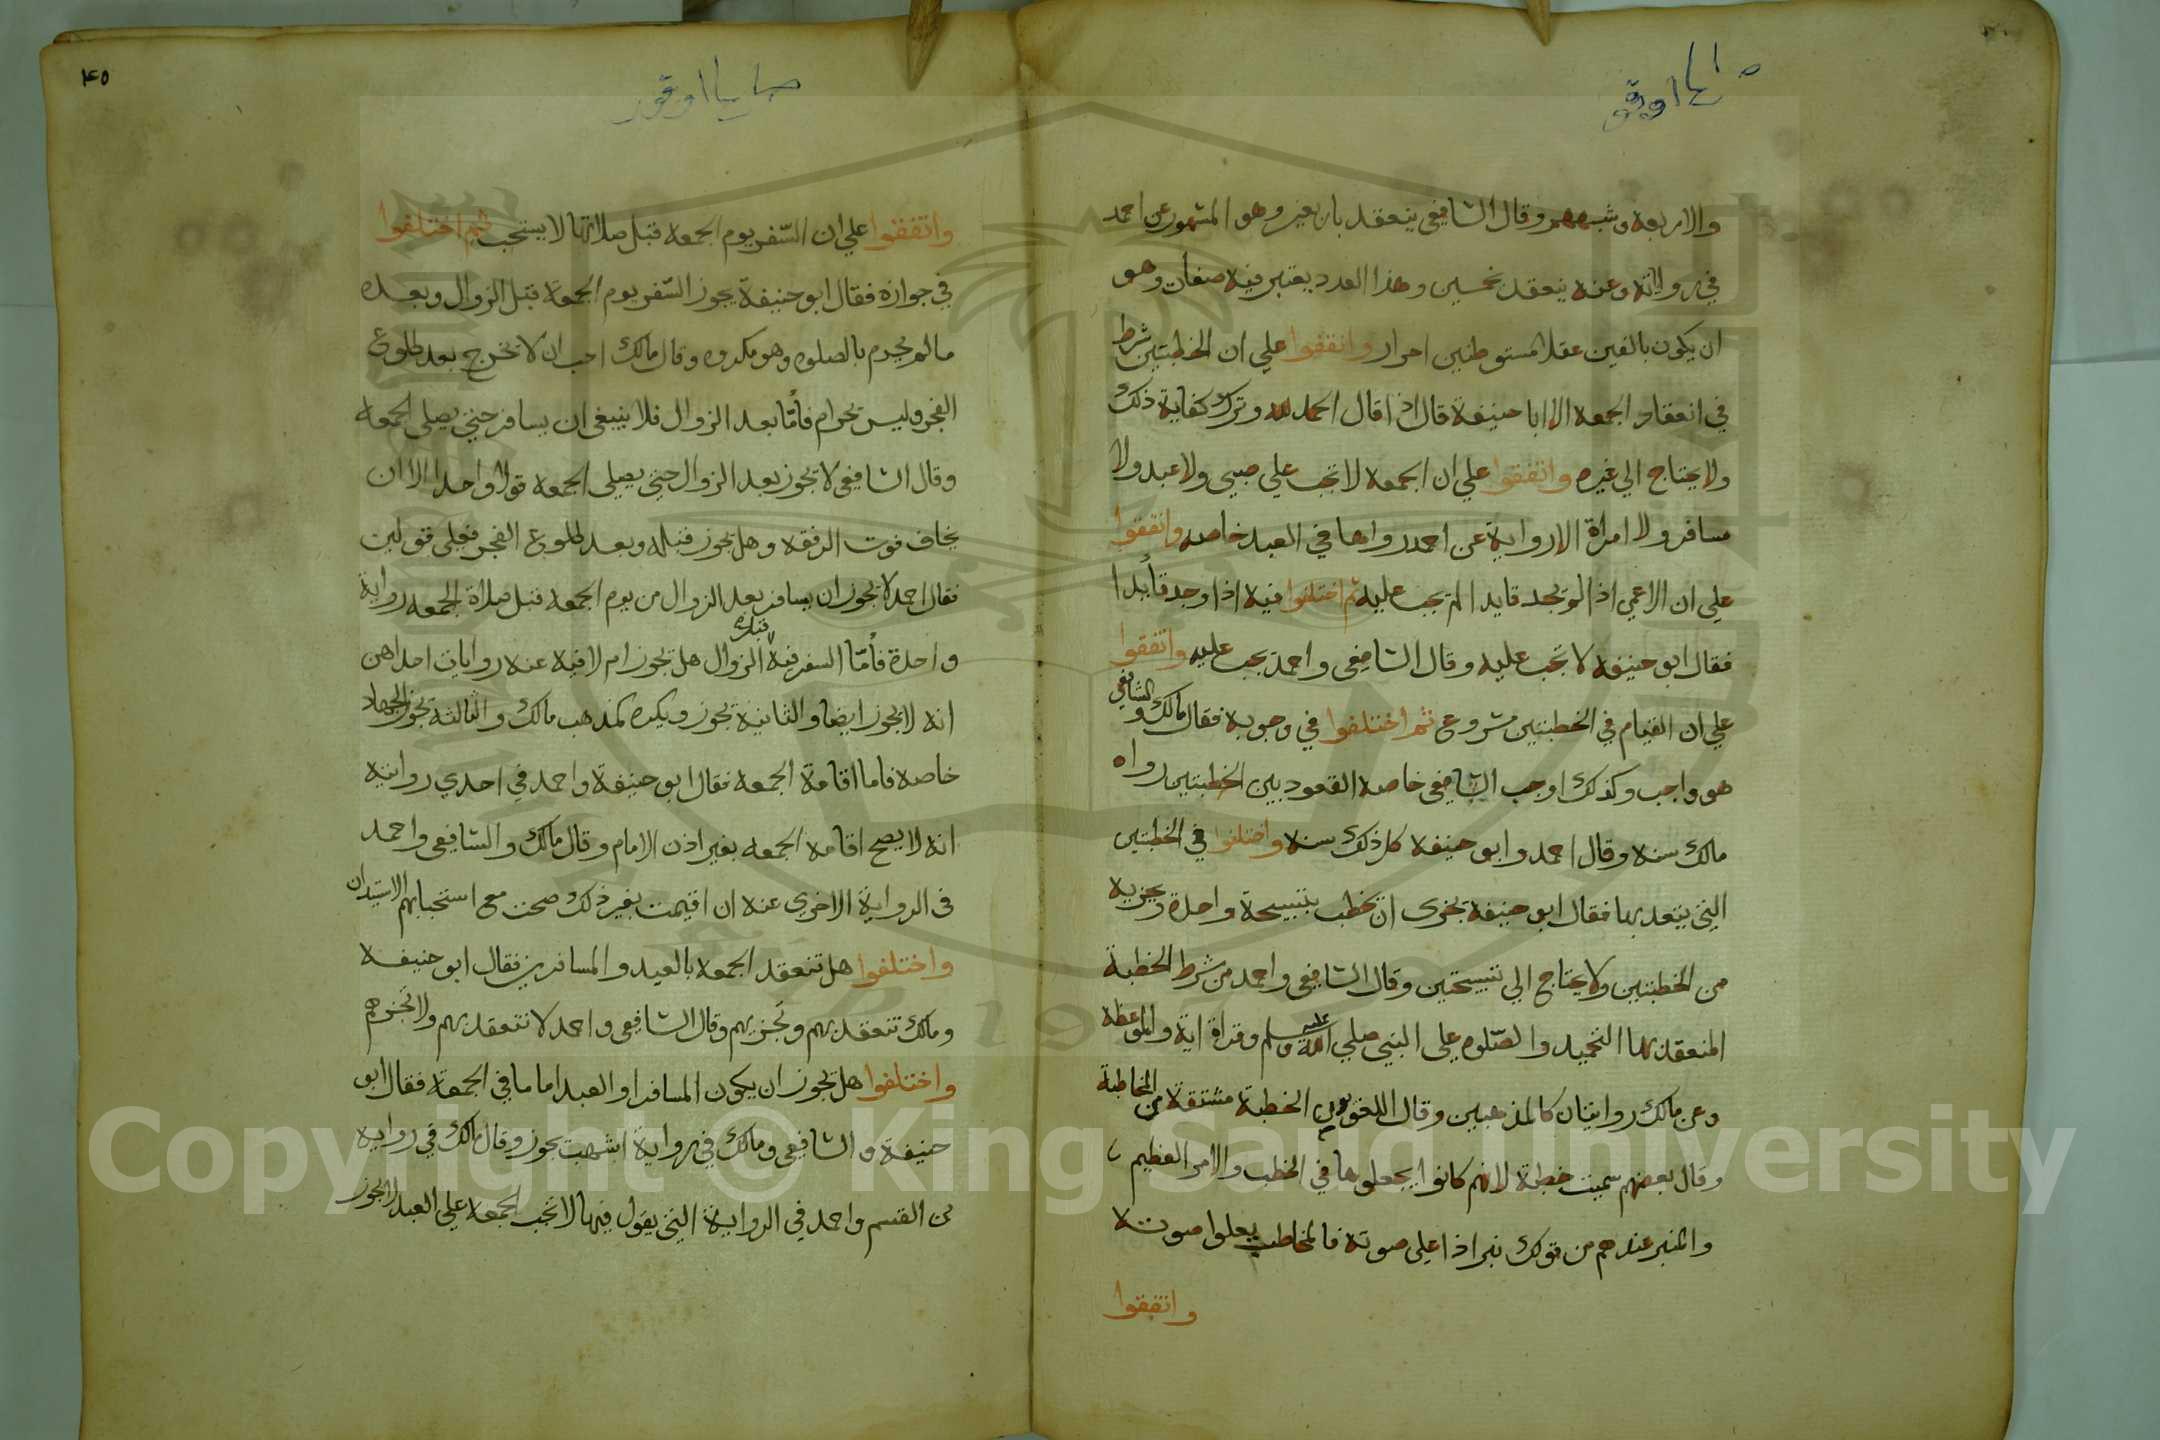 والاربعة وشبههم وقال الشافعي ينعقد باربعين وهو المشهور عن احمد
في روايته وعنه ينعقد بخمسين وهذا العدد يعتبر فيه صفات وهو
ان يكون بالغين عقلا مستوطنين احرار واتفقوا علي ان الخطبتين شرط
في انعقاد الجمعه الا ابا حنيفة قال اذا قال الحمد لله وترك كفاية ذلك
ولا يحتاج الي غيره واتفقوا علي ان الجمعه لا تجب علي صبي ولا عبد ولا
مسافر ولا امراة الا رواية عن احمد رواها في العبد خاصه واتفقوا
علي ان الاعمي اذا لم يجد قايدا لم تجب عليه ثم اختلفوا فيه اذا وجد قايدا
فقال ابو حنيفه لا تجب عليه وقال الشافعي واحمد يجب عليه واتفقوا
علي ان القيام في الخطبتين مشروع ثم اختلفوا في وجوبه فقال مالك والشافعي
هو واجب وكذلك اوجب الشافعي خاصه القعود بين الخطبتين رواه
مالك سنه وقال احمد وابو حنيفه كل ذلك سنه واختلفوا في الخطبتين
التي يتعد بها فقال ابو حنيفة تجزي ان يخطب بتسبيحة واحدة ويجزيه
من الخطبتين ولا يحتاج الي تسبيحتين وقال الشافعي واحمد من شرط الخطبة
المنعقد بها التحميد والصلوه علي النبي صلي الله عليه وسلم وقراة اية والموعظة
وعن مالك روايتان كالمذهبين وقال اللغويون الخطبة مشتقة من المخاطبة
وقال بعضهم سميت خطبة لانهم كانوا يجعلوها في الخطب والامر العظيم
والمنبر عندهم من قولك نبر اذا علي صوته فالمخاطب يعلوا صوته
واتفقوا
٤٥
واتفقوا علي ان السفر يوم الجمعه قبل صلاتها لا يستحب ثم اختلفوا
في جوازه فقال ابو حنيفة يجوز السفر يوم الجمعة قبل الزوال وبعده
مالم يحرم بالصلوه وهو مكروه وقال مالك احب ان لا تخرج بعد طلوع
الفجر وليس بحرام فأما بعد الزوال فلا ينبغي ان يسافر حتي يصلي الجمعه
وقال الشافعي لا تجوز بعد الزوال حتي يصلي الجمعه قولا واحدا الا ان
يخاف فوت الرفقه وهل يجوز قبله وبعد طلوع الفجر فعلي قولين
فقال احمد لا يجوز ان يسافر بعد الزوال من يوم الجمعه قبل صلاة الجمعه رواية
واحدة فأما السفر فيه قبله الزوال هل يجوز ام لا فيه عنه روايات احداهن
انه لا يجوز ايضا والثانية يجوز ويكره كمذهب مالك والثالثة يجوز للجهاد
خاصه فاما اقامة الجمعه فقال ابو حنيفة واحمد في احدي روايتيه
انه لا يصح اقامه الجمعه بغير اذن الامام وقال مالك والشافعي واحمد
في الرواية الاخري عنه ان اقيمت بغير ذلك صحت مع استحبابهم الاستيدان
واختلفوا هل تنعقد الجمعه بالعيد والمسافرين فقال ابو حنيفه
ومالك تنعقد بهم وتجزيهم وقال الشافعي واحمد لا تنعقد بهم ولا تجزهم
واختلفوا هل يجوز ان يكون المسافر او العبد اماما في الجمعة فقال ابو
حنيفة والشافعي ومالك في رواية اشهب يجوز وقال مالك في رواية
بن القسم واحمد في الرواية التي يقول فيها لا تجب الجمعه علي العبد لا يجوز
Copyright © King Saud University